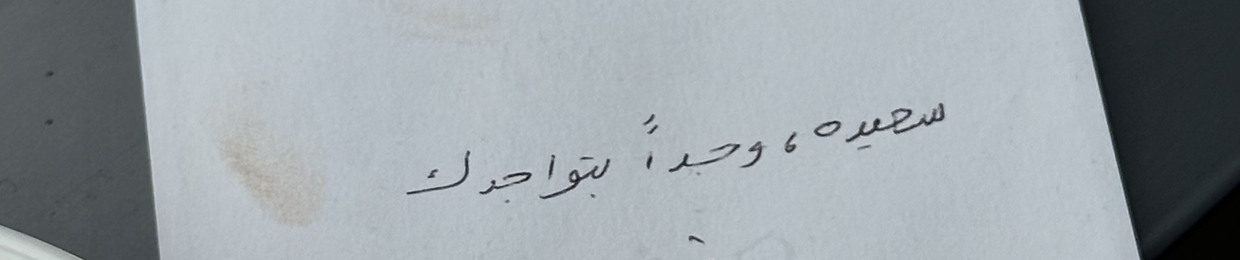 سعيده، وجداً بتواجدك